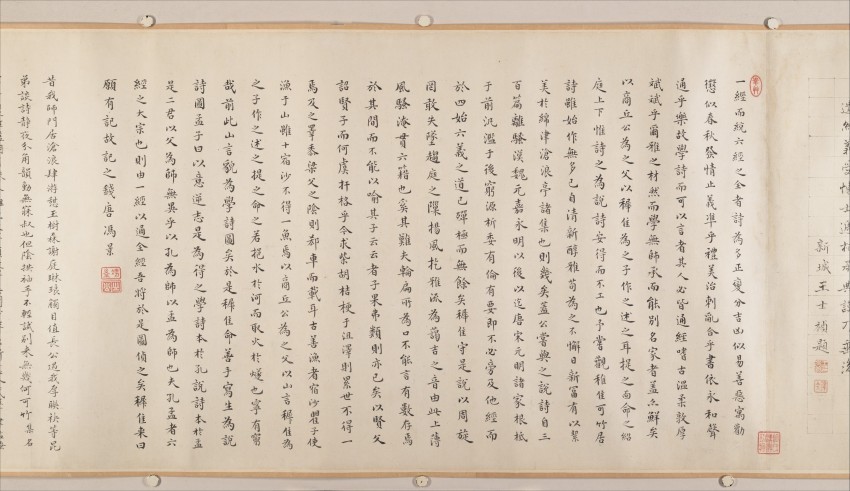 新城王士禎題
一經而統六經之全者詩為多正變分吉凶似易善惡寓勸
懲似春秋發情止義準乎禮美治刺亂合乎書依永和聲
通乎樂故學詩而可以言者其人必皆通經嗜古溫柔敦厚
斌斌乎爾雅之材然而學無師承而能别名家者蓋亦鮮矣
以商丘公為之父以稺佳為之子作之述之耳提之而面命之紹
庭上下惟詩之為說詩安得而不工也予嘗觀稚佳可竹居
詩雖始作無多已自清新醇雅苟為之不懈日新富有以絜
美於綿津滄浪亭諸集也則幾矣蓋公嘗與之說詩自三
百篇離騷漢魏元嘉永明以後以迄唐宋元明諸家根柢
于前汎濫于後窮源析委有倫有要即不必旁及他經而
於四始六義之道已殫極而無餘矣稺佳守是說以周旋
罔敢失墜趨庭之隙揚風扢雅流為藹吉之音由此上溥
風騷淹貫六籍也奚其難夫輪扁所為口不能言有數存焉
於其間而不能以喻其子云云者子果弗類則亦已矣以賢父
詔賢子而何虞扞格乎今求柴胡桔梗于沮澤則累世不得一
焉及之睪黍梁父之陰則郄車而載耳古善漁者宿沙瞿子使
漁于山雖十宿沙不得一魚焉以商丘公為之父以山言稺佳為
之子作之述之提之命之若挹水於河而取火於燧也寧有窮
哉前此山言貌為學詩圖矣於是稺佳命善手寫生為說
詩圖孟子曰以意逆志是為得之學詩本於孔說詩本於孟
是二君以父為師無異乎以孔為師以孟為師也夫孔孟者六
經之大宗也則由一經以通全經吾將於是圖偵之矣稺佳來曰
願有記故記之錢唐馮景
昔我師門居滄浪肆游憩玉樹森謝庭琳琅觸目值長公過我廬聯袂等
弟談詩静夜分角韻勤無厭叔也但陰拱袖手不輕試别來無幾何可竹集名